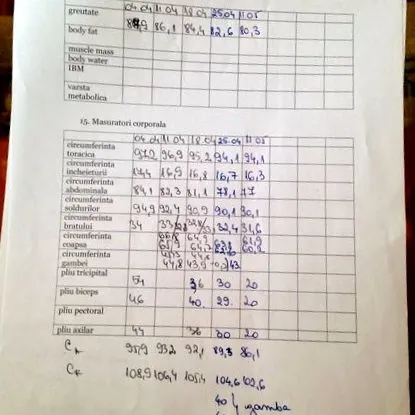 04.04 11.04 18.04 25.04 11.05
greutate
body fat 86,1 84,4 82,6 80,3
muscle mass
body water
IBM
varsta
metabolica
15. Masuratori corporala
04.04 11.04 18.04 25.04 11.05
circumferinta
toracica 97,2 96,9 95,2 94,1 94,1
circumferinta
incheieturii 16,9 16,8 16,7 16,3
circumferinta
abdominala 84,1 82,3 81,1 78,1 77
circumferinta
soldurilor 94,9 92,4 90,9 90,1 90,1
circumferinta
bratului 34 33 32,4 31,6
circumferinta
coapsa
circumferinta
gambei 44,8 43,9 43
pliu tricipital 54 36 30 20
pliu biceps 46 40 29 20
pliu pectoral
pliu axilar 44 36 30 20
95,9 93,2 92,1 89,3 86,1
108,9 106,4 105,4 104,6 102,6
40 gamba